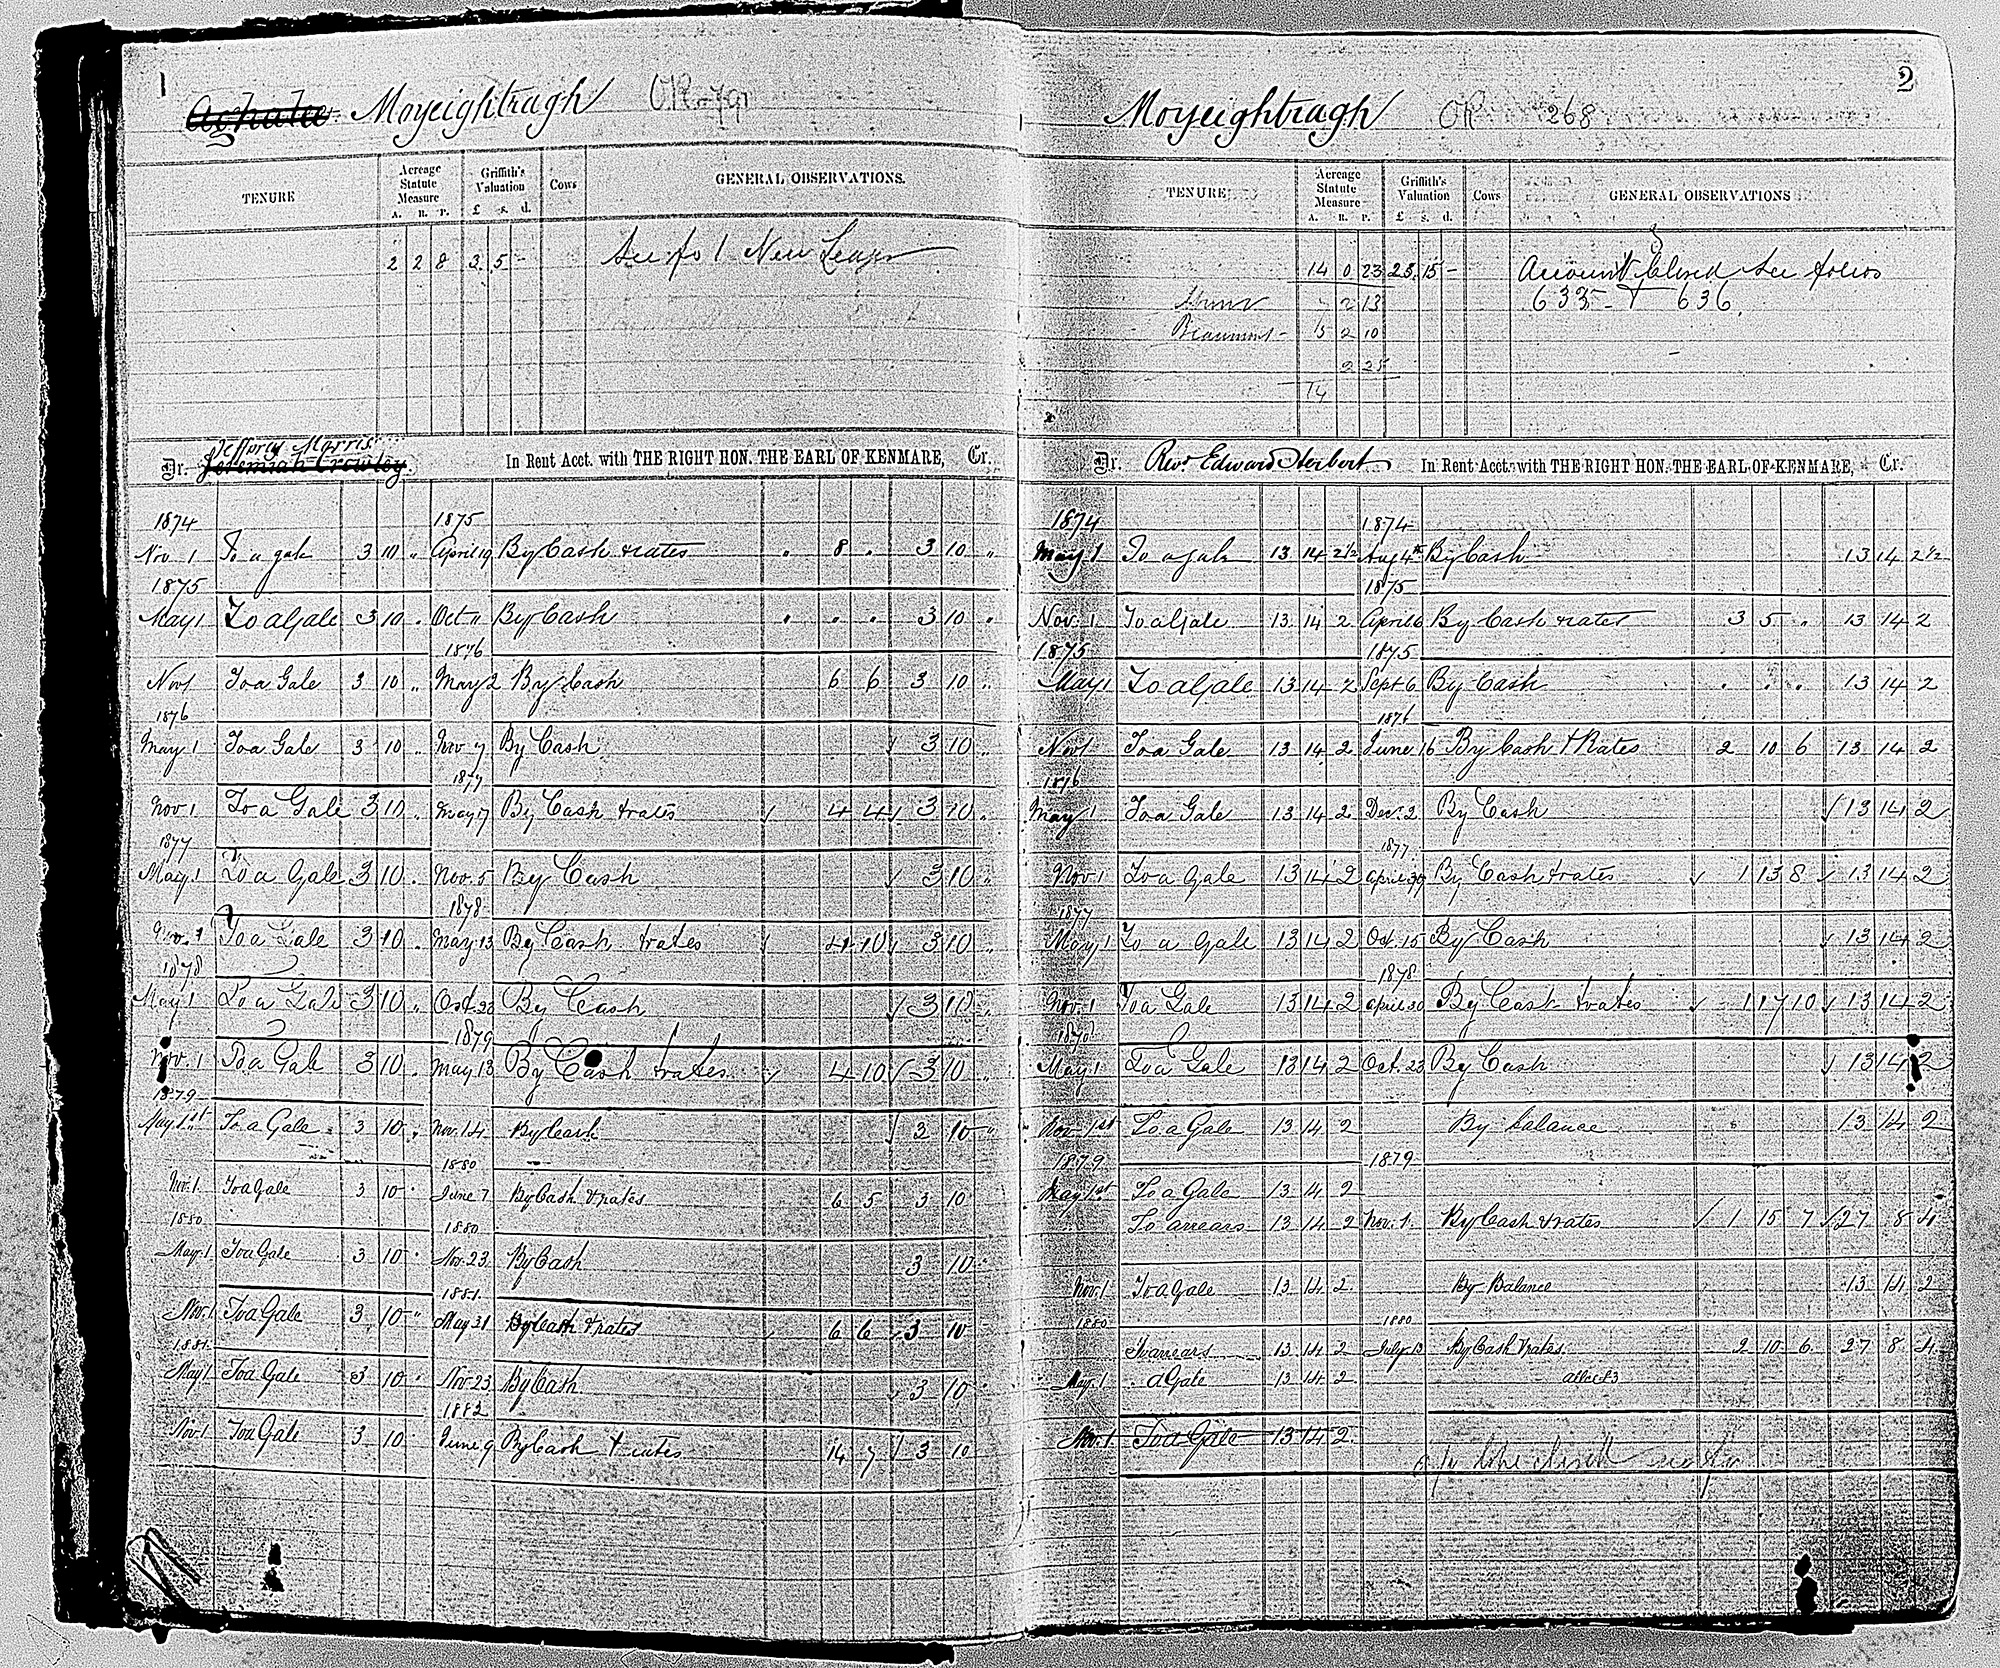 1
Aghalee Moyeightragh OR 791
TENURE
Acreage Statute Measure
A. R. P.
Griffith's Valuation
£ s. d.
Cows
GENERAL OBSERVATIONS.
2 2 8 2 5 - See fo 1 New Leager
Jeffory Morris
Dr. Jeremiah Crowley. In Rent Acct. with THE RIGHT HON. THE EARL OF KENMARE, Cr.
1874 1875
Nov. 1 To a gale 3 10 " April 19 By Cash & rates " 8 " 3 10 "
1875
May 1 To a Gale 3 10 " Oct 11 By Cash " " " 3 10 "
1876
Nov 1 To a Gale 3 10 " May 2 By Cash 6 6 3 10 "
1876
May 1 To a Gale 3 10 " Nov 7 By Cash 3 10 "
1877
Nov 1 To a Gale 3 10 " May 7 By Cash & rates 4 4 3 10 "
1877
May 1 To a Gale 3 10 " Nov. 5 By Cash 3 10 "
1878
Nov. 1 To a Gale 3 10 " May 13 By Cash & rates 4 10 3 10 "
1878
May 1 To a Gale 3 10 " Oct. 23 By Cash 3 10 "
1879
Nov. 1 To a Gale 3 10 " May 13 By Cash & rates 4 10 3 10 "
1879
May 1st To a Gale 3 10 " Nov. 14 By Cash 3 10 "
1880
Nov. 1 To a Gale 3 10 " June 7 By Cash & rates 6 5 3 10
1880 1880
May 1 To a Gale 3 10 " Nov. 23 By Cash 3 10
1881
Nov. 1 To a Gale 3 10 " May 31 By Cash & rates 6 6 3 10
1881
May 1 To a Gale 3 10 " Nov. 23 By Cash 3 10
1882
Nov 1 To a Gale 3 10 June 9 By Cash & rates 14 7 3 10
2
Moyeightragh OR 268
TENURE
Acreage Statute Measure
A. R. P.
Griffith's Valuation
£ s. d.
Cows
GENERAL OBSERVATIONS
14 0 23 23 15 - Account Closed See folios
2 13 635 & 636.
Beaumont 13 2 10
2 25
14
Dr. Revd. Edward Herbert In Rent Acct. with THE RIGHT HON. THE EARL OF KENMARE, Cr.
1874 1874
May 1 To a gale 13 14 2½ Aug 4th By Cash 13 14 2½
1875
Nov. 1 To a Gale 13 14 2 April 6 By Cash & rates 3 5 " 13 14 2
1875 1875
May 1 To a Gale 13 14 2 Sept 6 By Cash " " " 13 14 2
1876
Nov 1 To a Gale 13 14 2 June 16 By Cash & Rates 2 10 6 13 14 2
1876
May 1 To a Gale 13 14 2 Dec. 2 By Cash 13 14 2
1877
Nov. 1 To a Gale 13 14 2 April 30 By Cash & rates 1 13 8 13 14 2
1877
May 1 To a Gale 13 14 2 Oct. 15 By Cash 13 14 2
1878
Nov. 1 To a Gale 13 14 2 April 30 By Cash & rates 1 17 10 13 14 2
1878
May 1 To a Gale 13 14 2 Oct. 23 By Cash 13 14 2
Nov 1st To a Gale 13 14 2 By balance 13 14 2
1879 1879
May 1st To a Gale 13 14 2
To arrears 13 14 2 Nov. 1 By Cash & rates 1 15 7 27 8 4
Nov. 1 To a Gale 13 14 2 By Balance 13 14 2
1880 1880
To arrears 13 14 2 July 13 By Cash & rates 2 10 6 27 8 4
May 1 " a Gale 13 14 2
Nov. 1 To a Gale 13 14 2